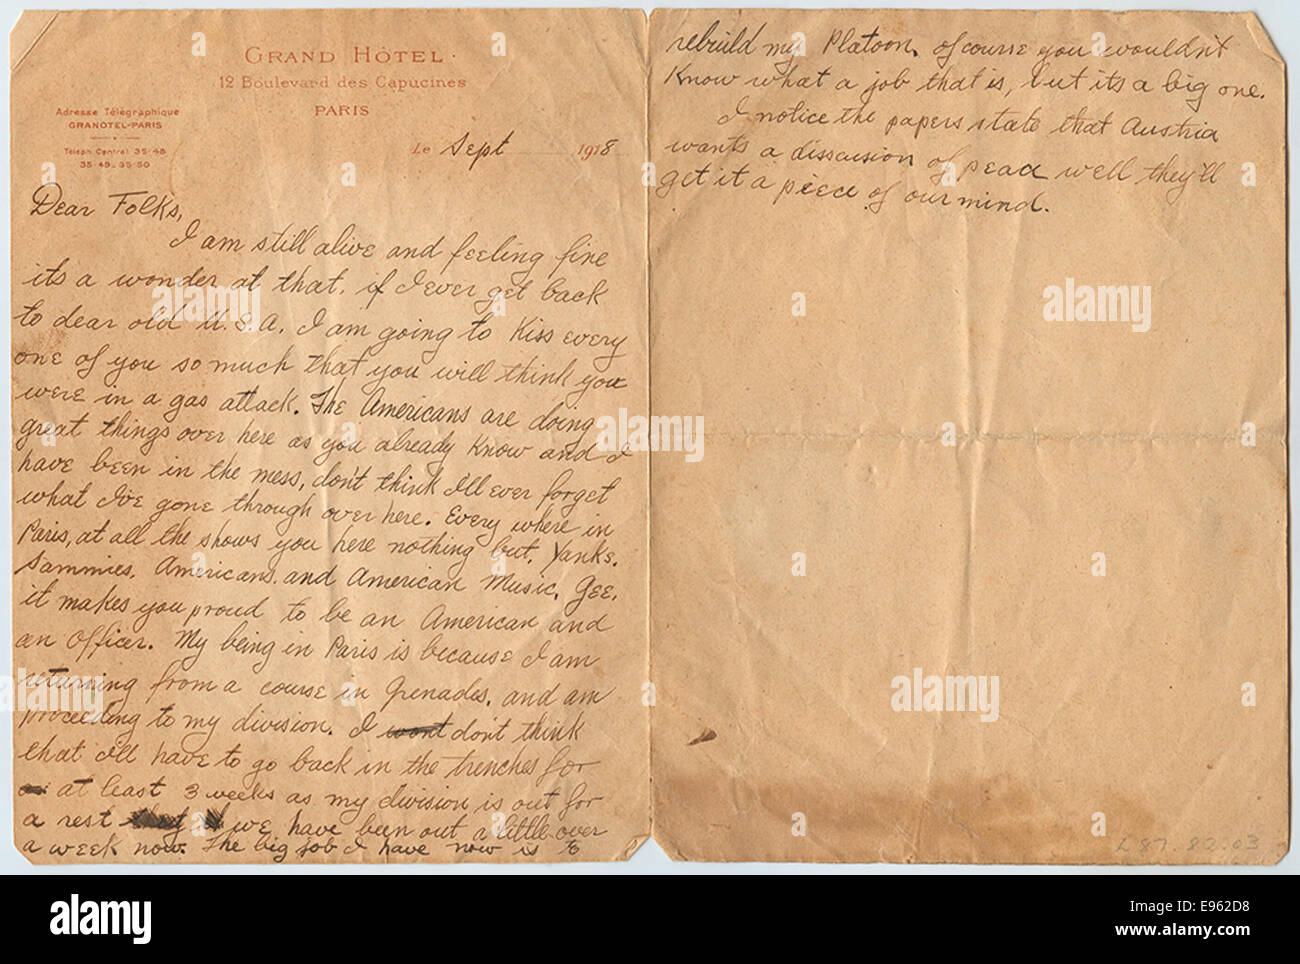 GRAND HÔTEL
12 Boulevard des Capucines
PARIS
Adresse Télégraphique
GRANOTEL-PARIS
Téléph. Central 35-48
35-49_35-50
Le Sept 1918
Dear Folks,
I am still alive and feeling fine
its a wonder at that. if I ever get back
to dear old U.S.A. I am going to kiss every
one of you so much that you will think you
were in a gas attack. The Americans are doing
great things over here as you already know and I
have been in the mess, don't think I'll ever forget
what I've gone through over here. Every where in
Paris, at all the shows you here nothing but, Yanks.
Sammies, Americans. and American Music. Gee.
it makes you proud to be an American and
an officer. My being in Paris is because I am
returning from a course in Grenades. and am
proceeding to my division. I wont don't think
that i'll have to go back in the trenches for
at least 3 weeks as my division is out for
a rest we have been out a little over
a week now. The big job I have now is to
rebuild my Platoon. of course you wouldn't
Know what a job that is, but its a big one.
I notice the papers state that Austria
wants a disscusion of peace well they'll
get it a piece of our mind.
L87.82.03
alamy
a
alamy stock photo
E962D8
www.alamy.com